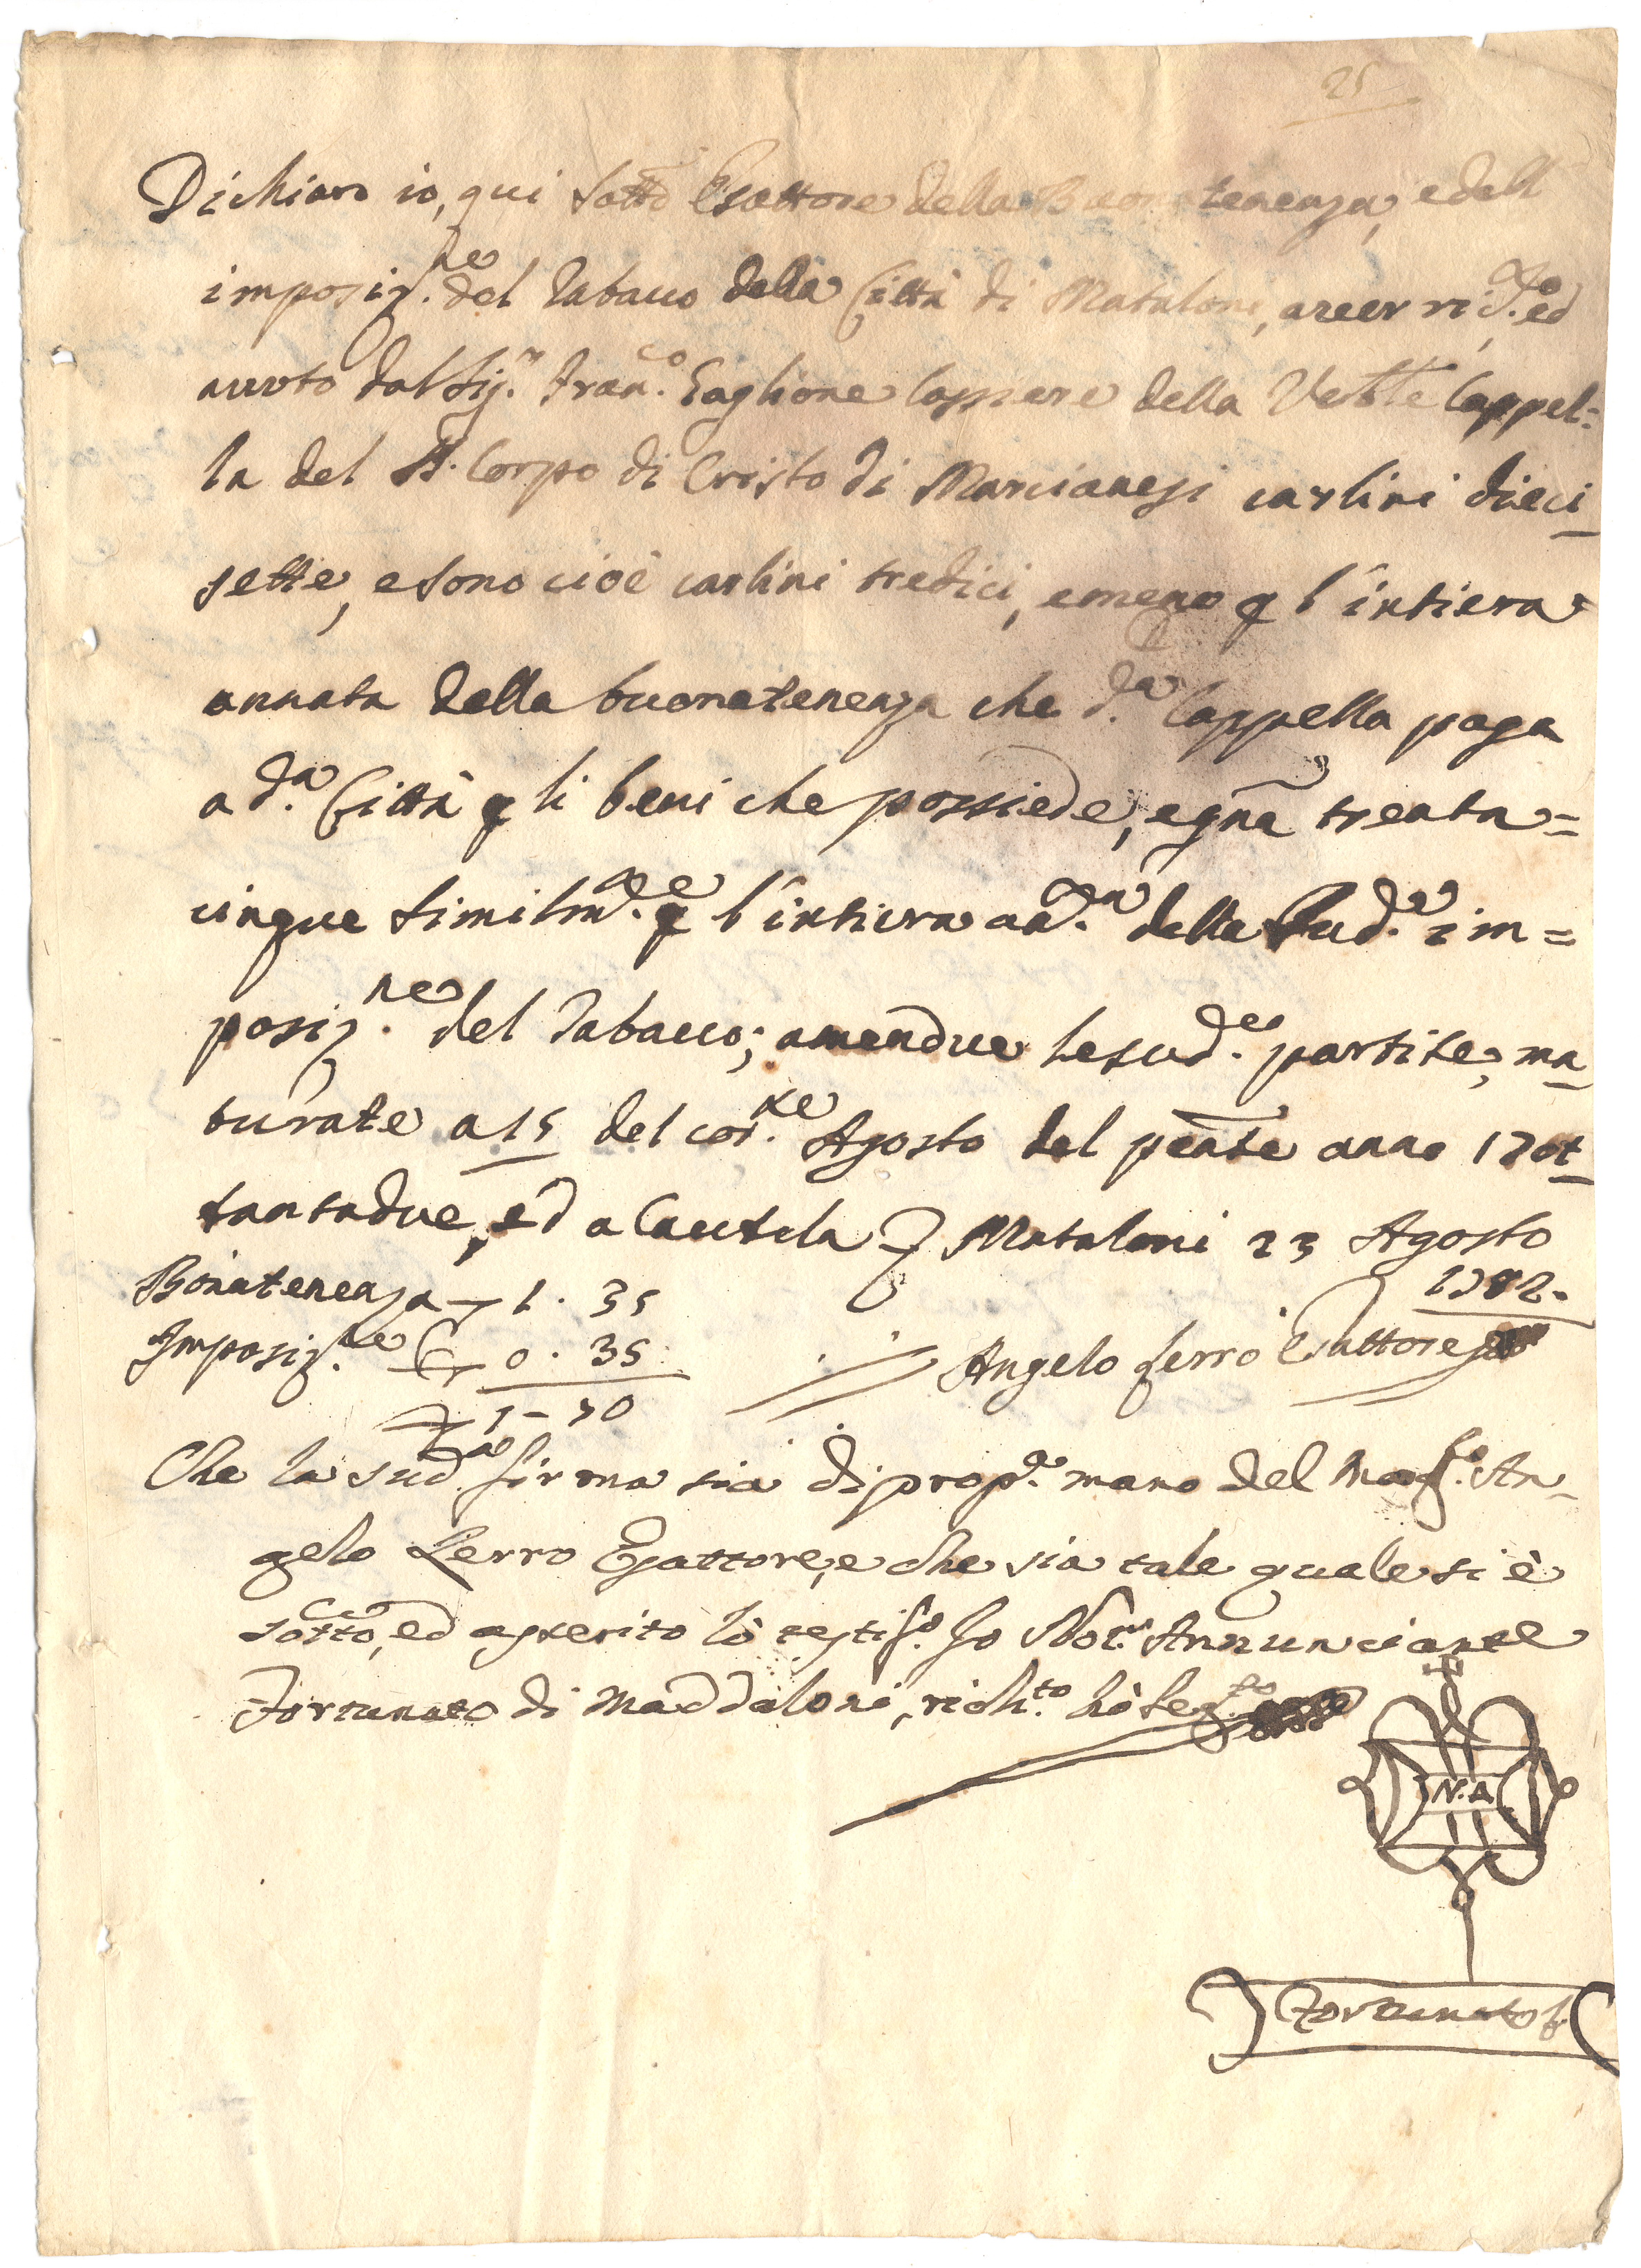 25
Dichiaro io, qui sotto Esattore della Buonatenenza, e dell
imposiz.ne del Tabacco della Città di Mataloni, aver ric.to ed
avuto dal Sig.r Fran.co Taglione Cassiere della Ven.le Cappel=
la del SS. Corpo di Cristo di Marcianesi carlini dieci
sette, e sono cioè carlini tredici, e meno p l'intiera
annata della buonatenenza che d.a Cappella paga
a d.a Città p li beni che possiede, e gna trenta=
cinque similm.de p l'intiera an.ta della sud.a im=
posiz.ne del Tabacco; amendue le sud.e partite, ma
turate a 15 del cor.te Agosto del pente anno 17ot
tantadue, ed a cautela Mataloni 23 Agosto
1782.
Bonatenenza 1. 35
Imposiz.ne 0. 35
1 - 70
Angelo Ferro Esattore
Che la sud.a firma sia di prop.a mano del Mag.co An
gelo Ferro Esattore, e che sia tale quale si è
sotto, ed asserito lò testif.o Io Not.r Annunciante
Fortunato di Maddaloni, rich.to hò seg.to
N.A
Fortunato